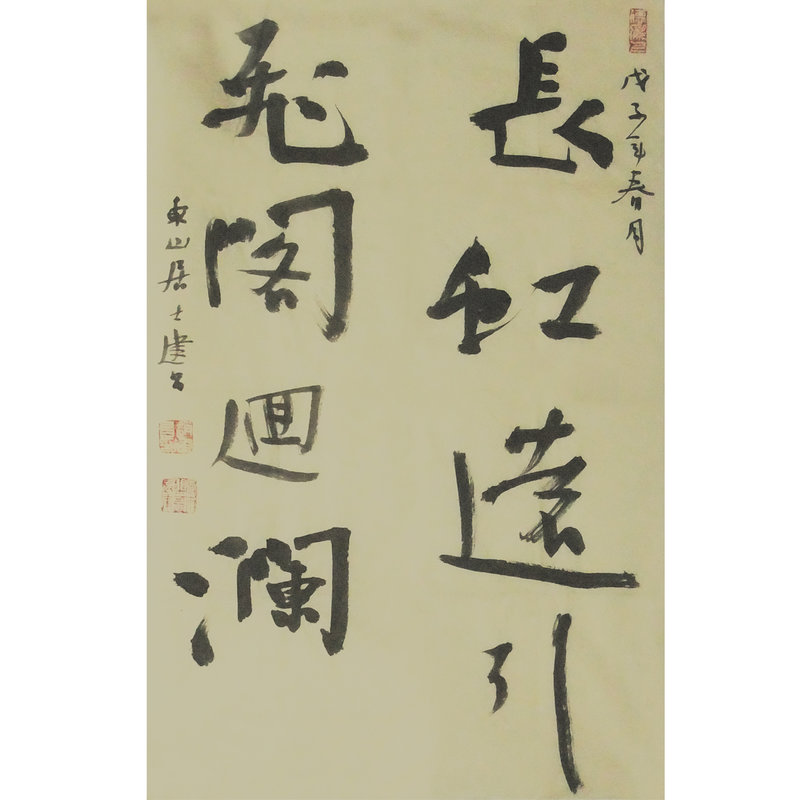 戊子年春月
長虹遠引
飛閣迴瀾
東山居士建